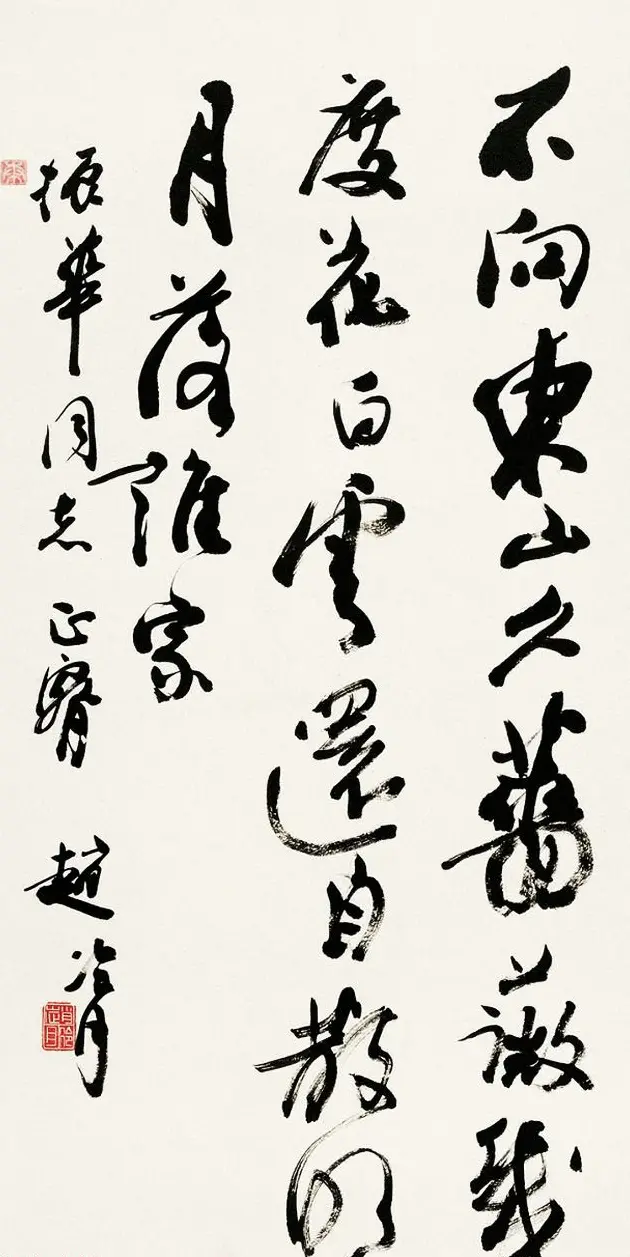 不向東山久薔薇幾
度花白雲還自散明
月落誰家
振華同志正 趙冷月